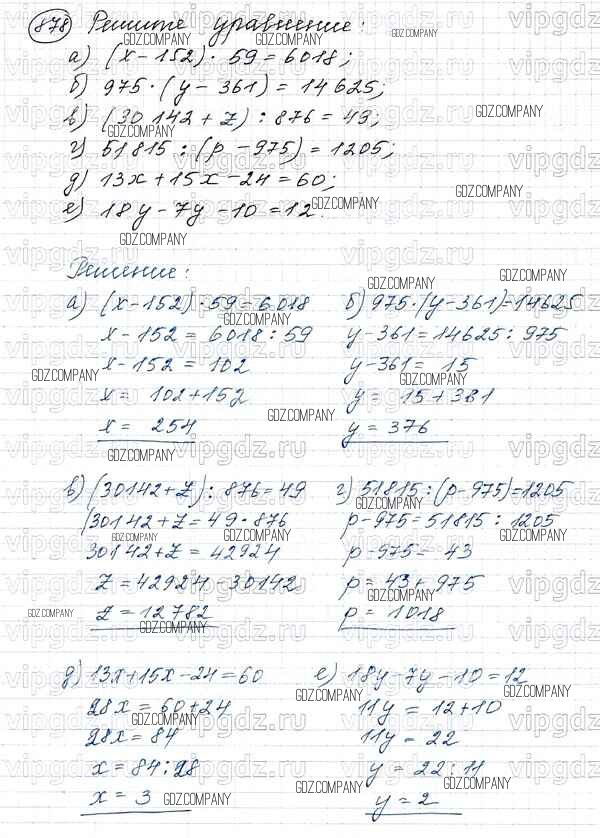 878 Решите уравнение:
а) (x-152)·59=6018;
б) 975·(y-361)=14625;
в) (30142+z):876=49;
г) 51815:(p-975)=1205;
д) 13x+15x-24=60;
е) 18y-7y-10=12.
Решение:
а) (x-152)·59=6018
x-152=6018:59
x-152=102
x=102+152
x=254
б) 975·(y-361)=14625
y-361=14625:975
y-361=15
y=15+361
y=376
в) (30142+z):876=49
(30142+z=49·876
30142+z=42924
z=42924-30142
z=12782
г) 51815:(p-975)=1205
p-975=51815:1205
p-975=43
p=43+975
p=1018
д) 13x+15x-24=60
28x=60+24
28x=84
x=84:28
x=3
е) 18y-7y-10=12
11y=12+10
11y=22
y=22:11
y=2
GDZ.COMPANY
vipgdz.ru